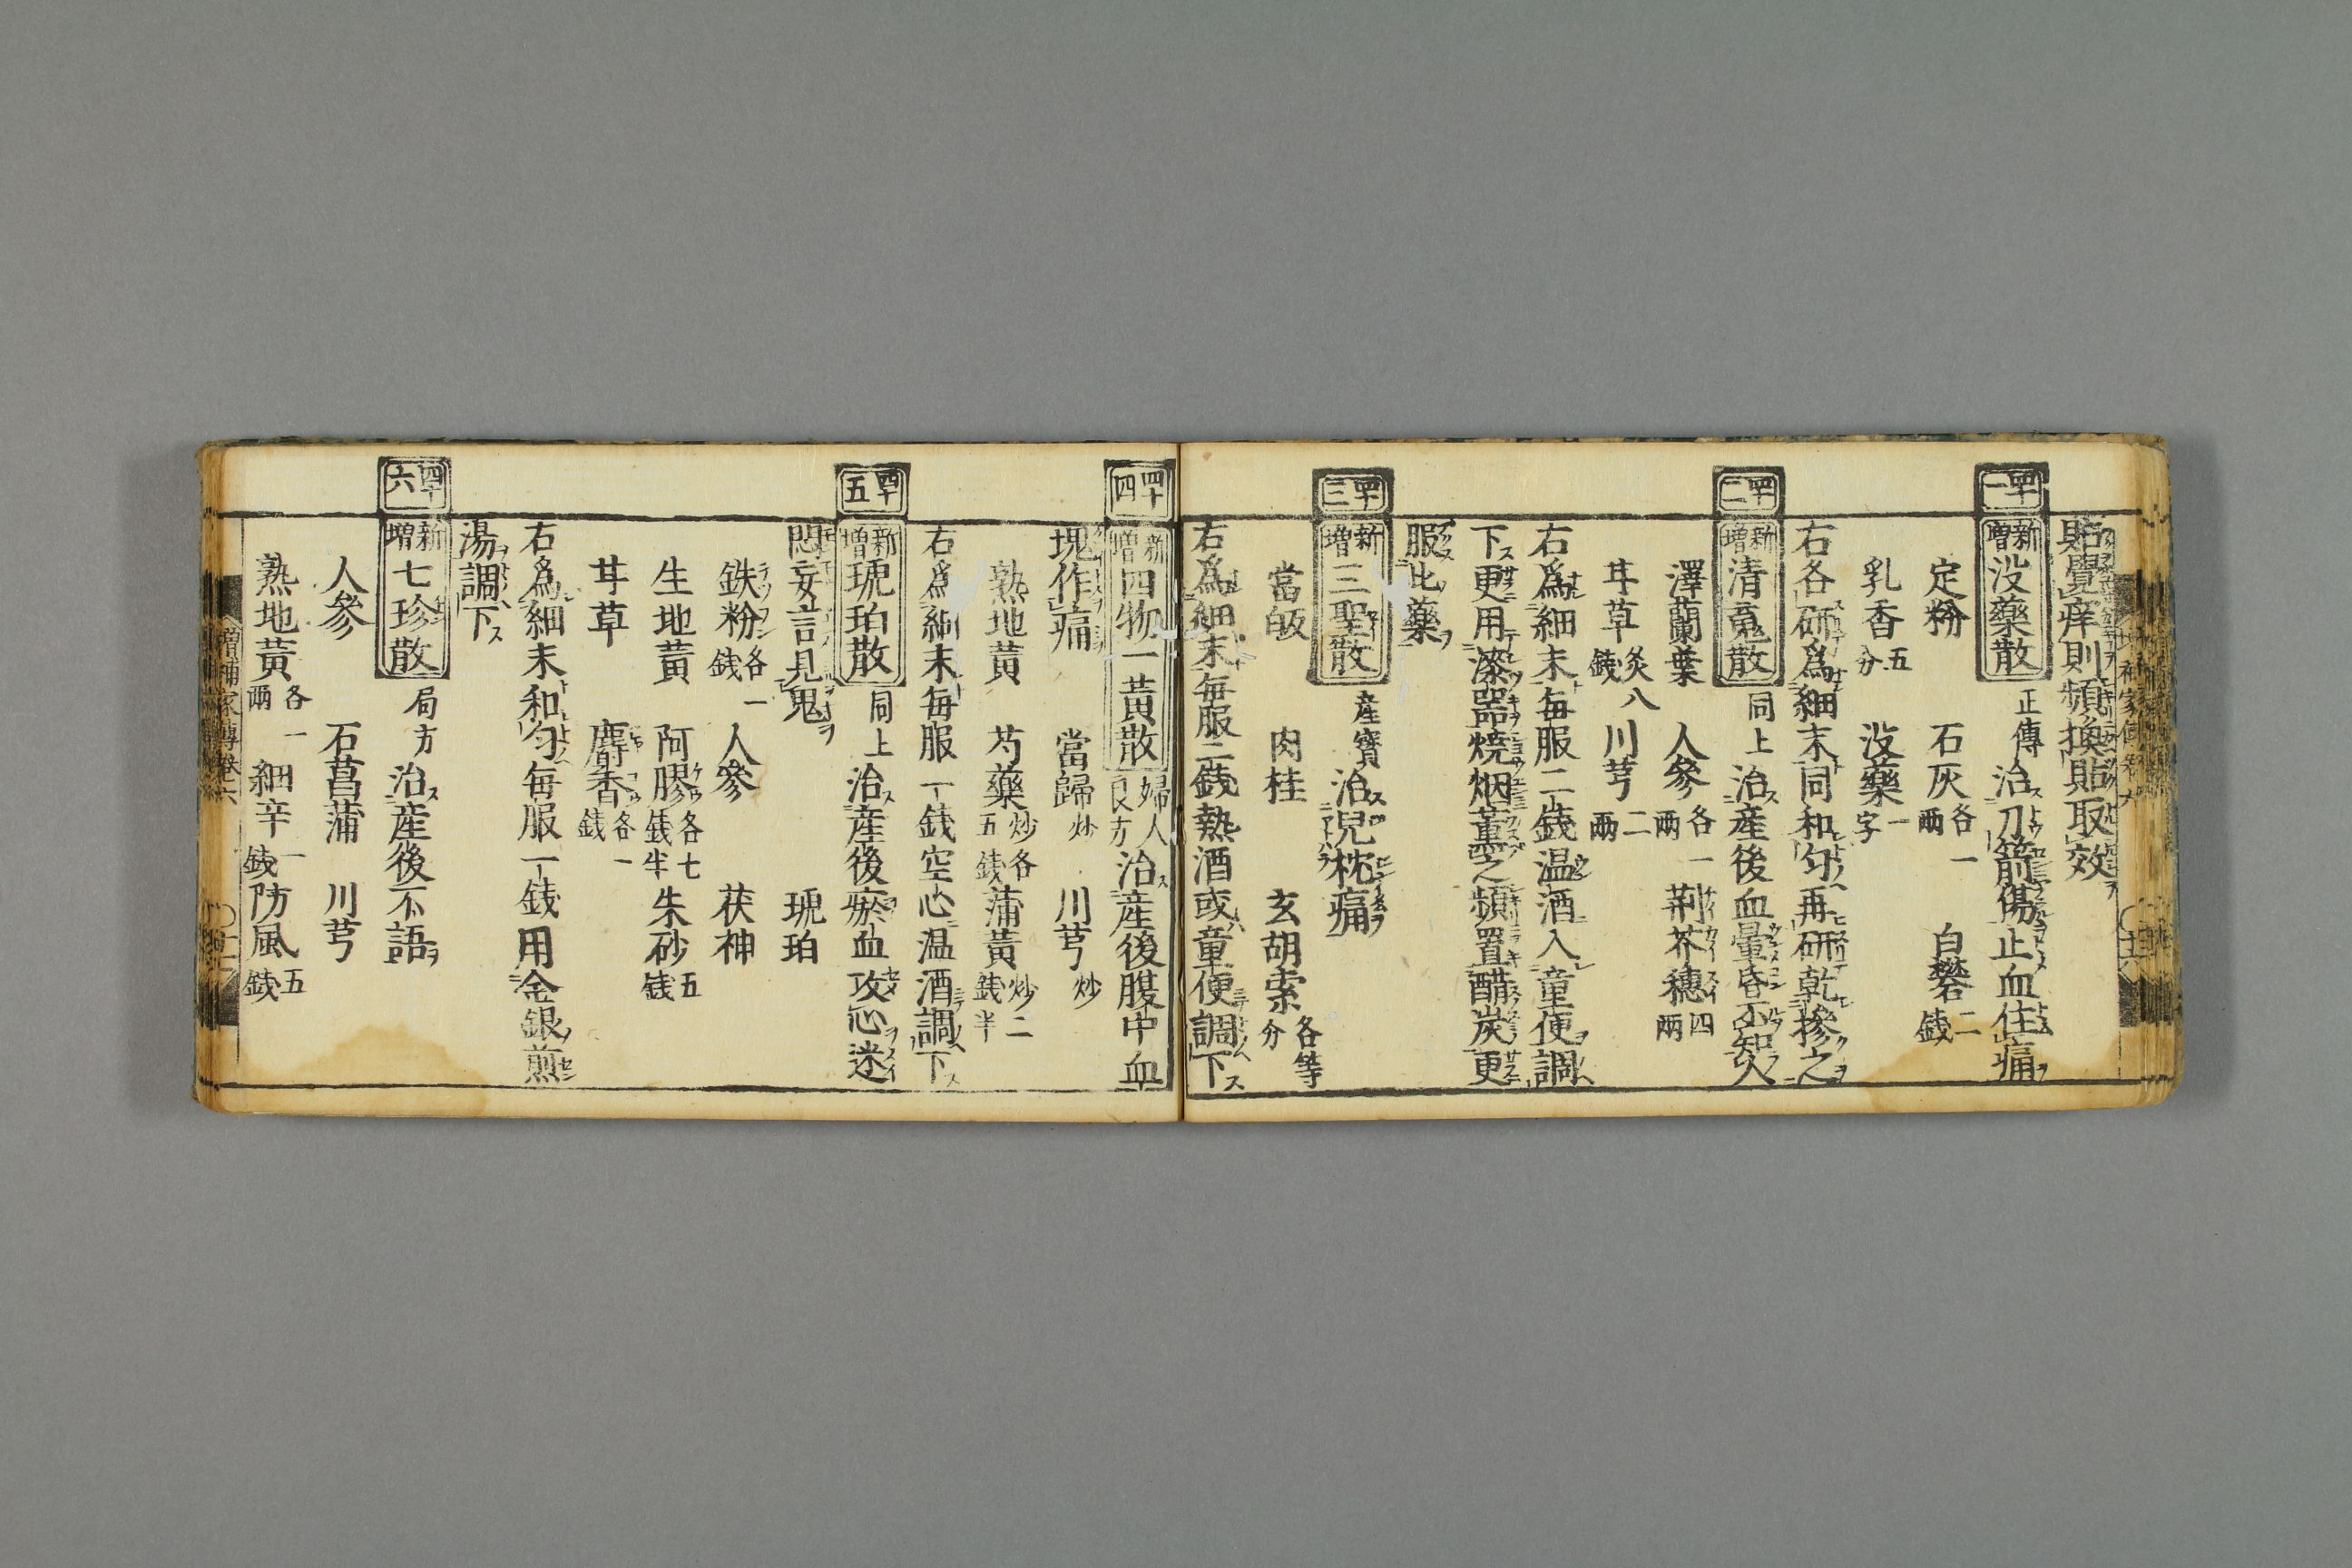 貼覺痒則頻換貼取效
四十一 新增 没藥散 正傳 治刀箭傷止血住痛
定粉 石灰各一兩 白礬二錢
乳香五分 没藥一字
右各研爲細末同和匀再研乾摻之
四十二 新增 清竟散 同上 治產後血暈昏不知人
澤蘭葉 人參各一兩 荆芥穗四兩
甘草炙八錢 川芎二兩
右爲細末毎服二錢温酒入童便調
下更用漆器燒烟薰之頻置醋炭更
服此藥
四十三 新增 三聖散 產寶 治兒枕痛
當皈 肉桂 玄胡索各等分
右爲細末毎服二錢熱酒或童便調下
四十四 新增 四物一黃散 婦人良方 治產後腹中血
塊作痛 當歸炒 川芎炒
熟地黃 芍藥炒各五錢 蒲黃炒二錢半
右爲細末毎服一錢空心温酒調下
四十五 新增 琥珀散 同上 治產後瘀血攻心迷
悶妄言見鬼 琥珀
鉄粉各一錢 人參 茯神
生地黃 阿膠各七錢半 朱砂五錢
甘草 麝香各一錢
右爲細末和匀毎服一錢用金銀煎
湯調下
四十六 新增 七珍散 局方 治產後不語
人參 石菖蒲 川芎
熟地黃各一兩 細辛一錢 防風五錢
增補家傳卷六